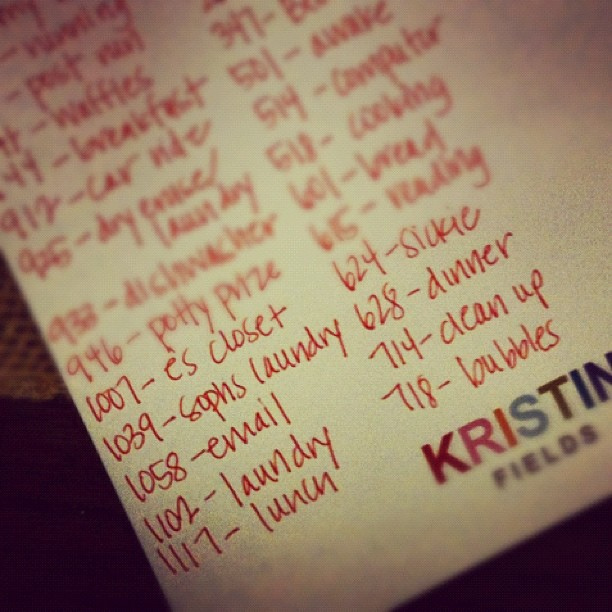 post
waffles
44 - breakfast
912 - car ride
925 - dry erase/
laundry
933 - dishwasher
946 - potty prize
1007 - es closet
1039 - sophs laundry
1058 - email
1102 - laundry
1117 - lunch
347 -
501 - awake
514 - computer
518 - cooking
601 - bread
615 - reading
624 - sickie
628 - dinner
714 - clean up
718 - bubbles
KRISTIN
FIELDS